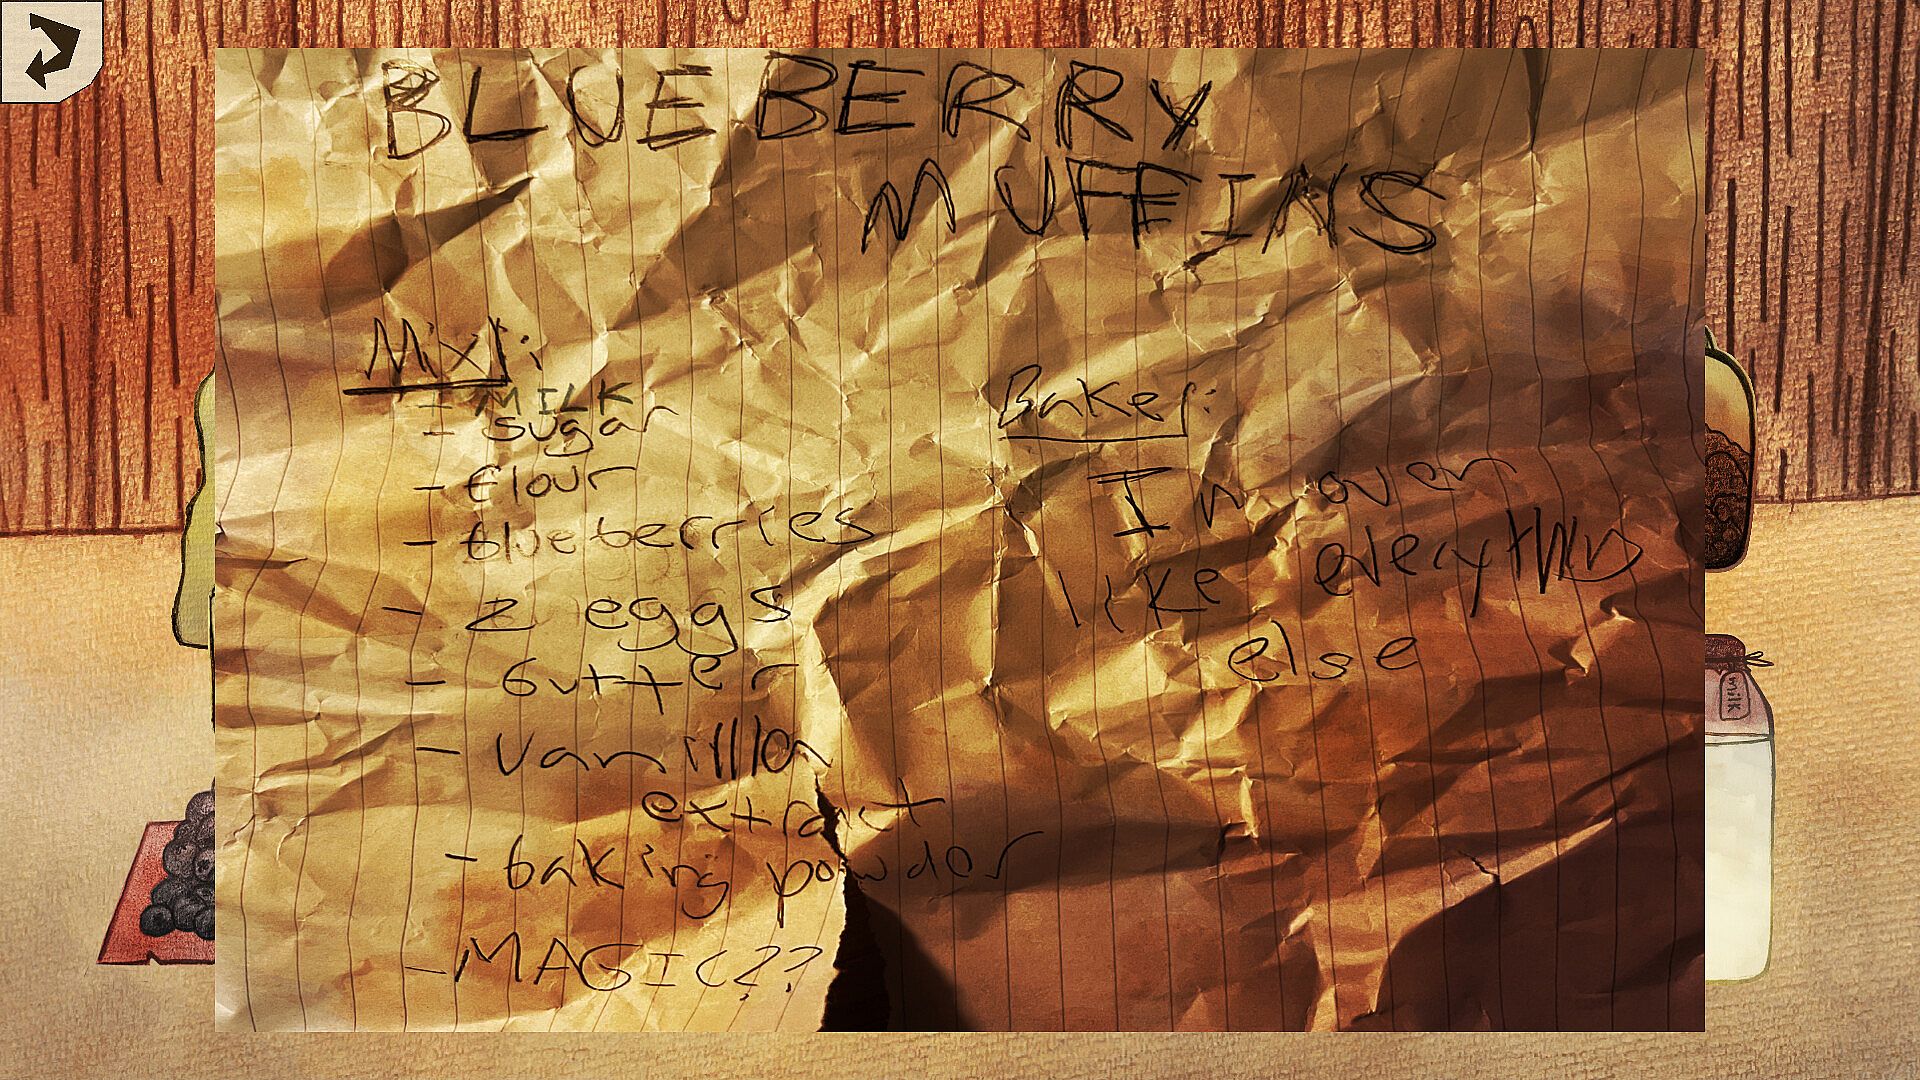 BLUEBERRY
MUFFINS
Mix:
- MILK
- sugar
- flour
- blueberries
- 2 eggs
- butter
- vanillla
extract
- baking powder
- MAGIC??
Baker:
In oven
like everything
else
milk